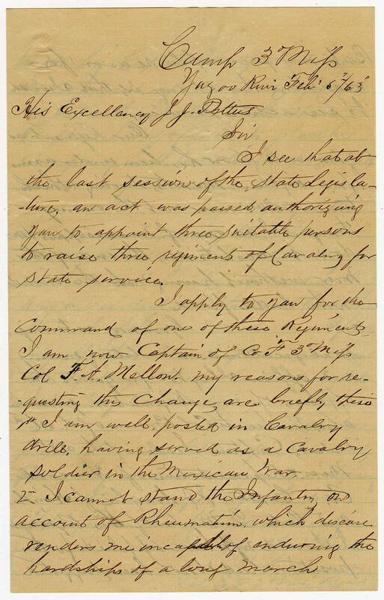 Camp 3d Miss
Yazoo River Feb 6th/63
His Excellency J. J. Pettus
Sir
I see that at
the last session of the State legisla-
ture, an act was passed, authorizing
you to appoint three suitable persons
to raise three regiments of Cavalry for
State service.
I apply to you for the
Command of one of these Regiments
I am now Captain of Co F 3d Miss
Col F. A. Mellon. my reasons for re-
questing this Change, are briefly these
1st I am well posted in Cavalry
drill, having served as a Cavalry
soldier in the Mexican War.
2 I cannot stand the Infantry on
account of Rheumatism, which disease
renders me incapable of enduring the
hardships of a long march